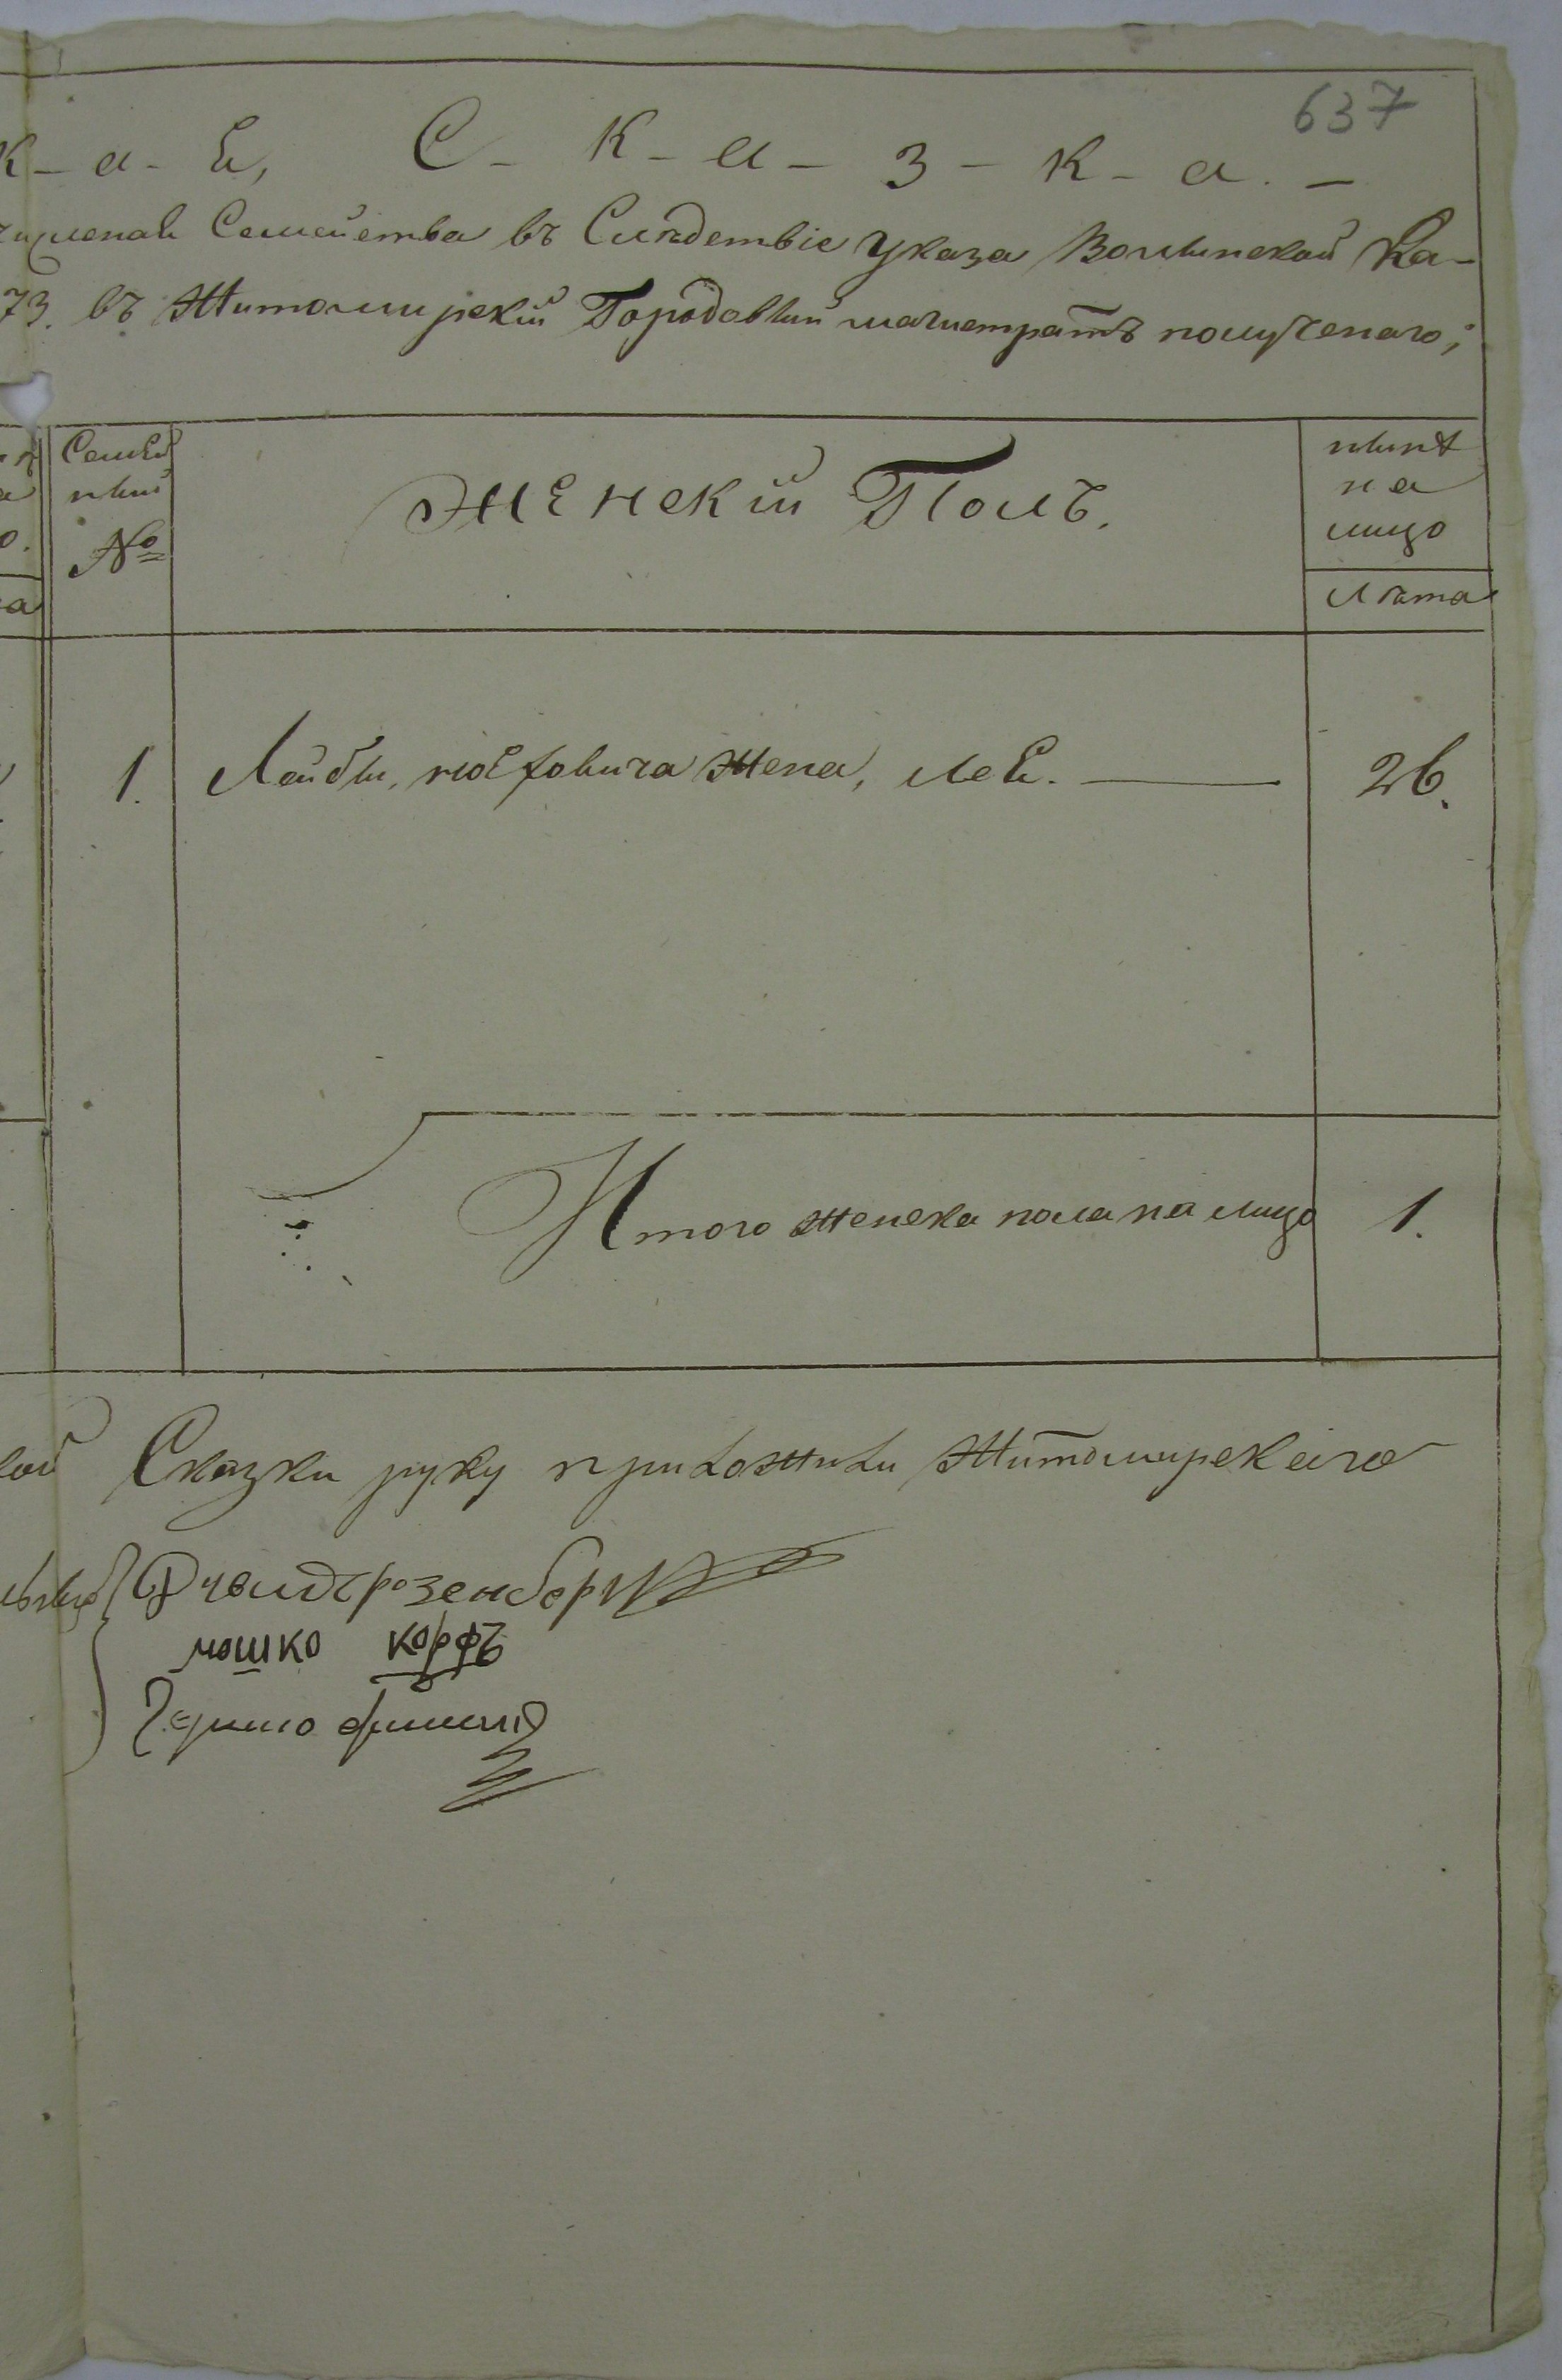 637
к - а - я, С - К - а - З - К - а. -
Семейства въ Следствіе указа Волынской Ка-
73. въ Житомирскій Городовый магистратъ полученаго;
Семей
ный
№
Женскій Полъ.
нынѣ
на
лицо
Лѣта
1. Лейбы, Иосѣфовича жена, лея. 26.
Итого женска пола на лицо 1.
Сказки руку приложили Житомирскаго
розенберг
мошко корфъ